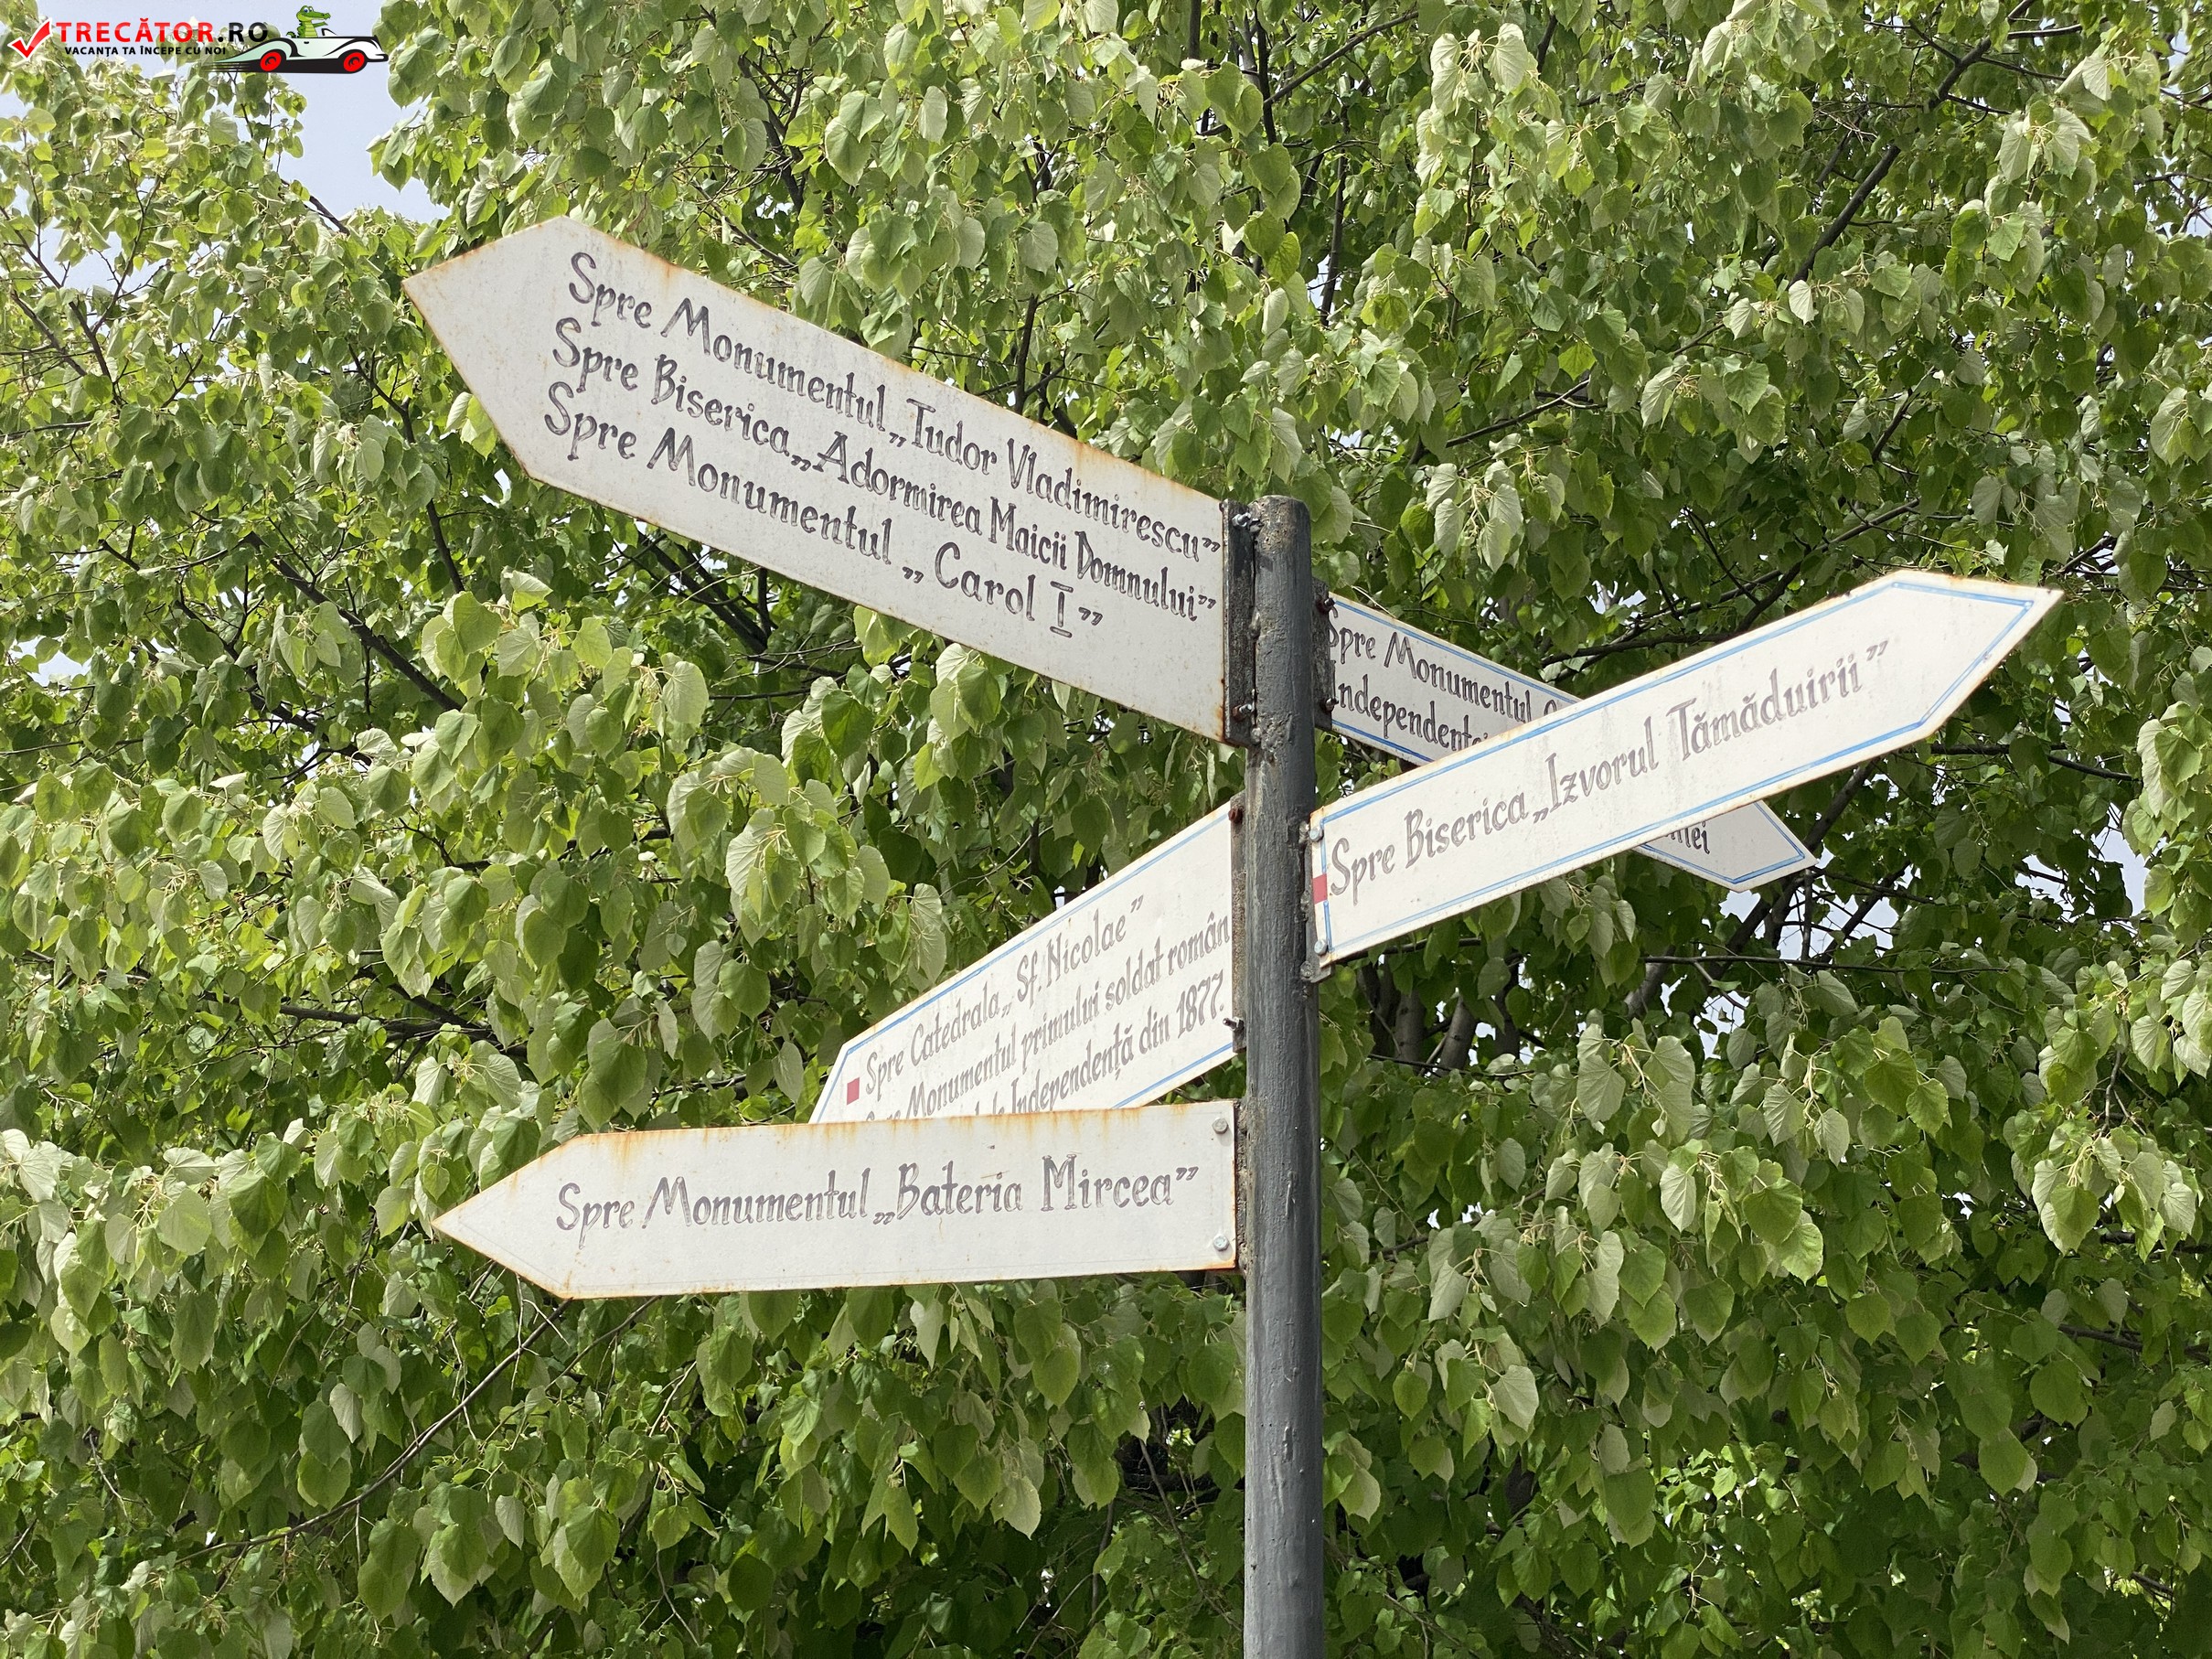 TRECĂTOR.RO
VACANȚA TA ÎNCEPE CU NOI
Spre Monumentul „Tudor Vladimirescu”
Spre Biserica „Adormirea Maicii Domnului”
Spre Monumentul „Carol I”
Spre Monumentul
Spre Biserica „Izvorul Tămăduirii”
Spre Catedrala „Sf. Nicolae”
Monumentul primului soldat român
Independență din 1877.
Spre Monumentul „Bateria Mircea”